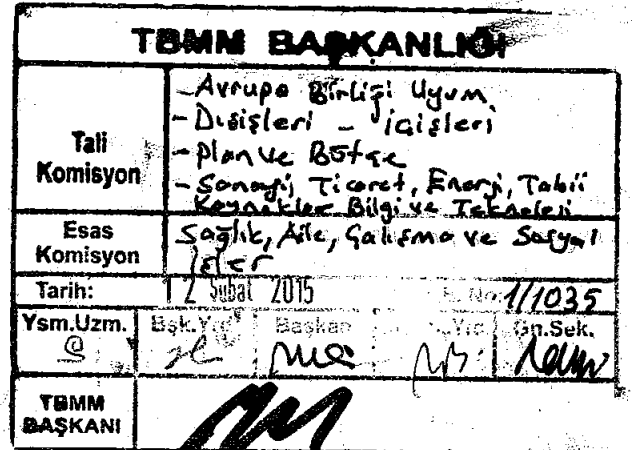 TBMM BAŞKANLIĞI
Tali Komisyon
- Avrupa Birliği Uyum
- Dışişleri - İçişleri
- Plan ve Bütçe
- Sanayi, Ticaret, Enerji, Tabii
Kaynaklar Bilgi ve Teknoloji
Esas Komisyon
Sağlık, Aile, Çalışma ve Sosyal
İşler
Tarih: 12 Şubat 2015 E. No: 1/1035
Ysm.Uzm. Bşk.Yrd. Başkan Yrd. Gn.Sek.
TBMM
BAŞKANI